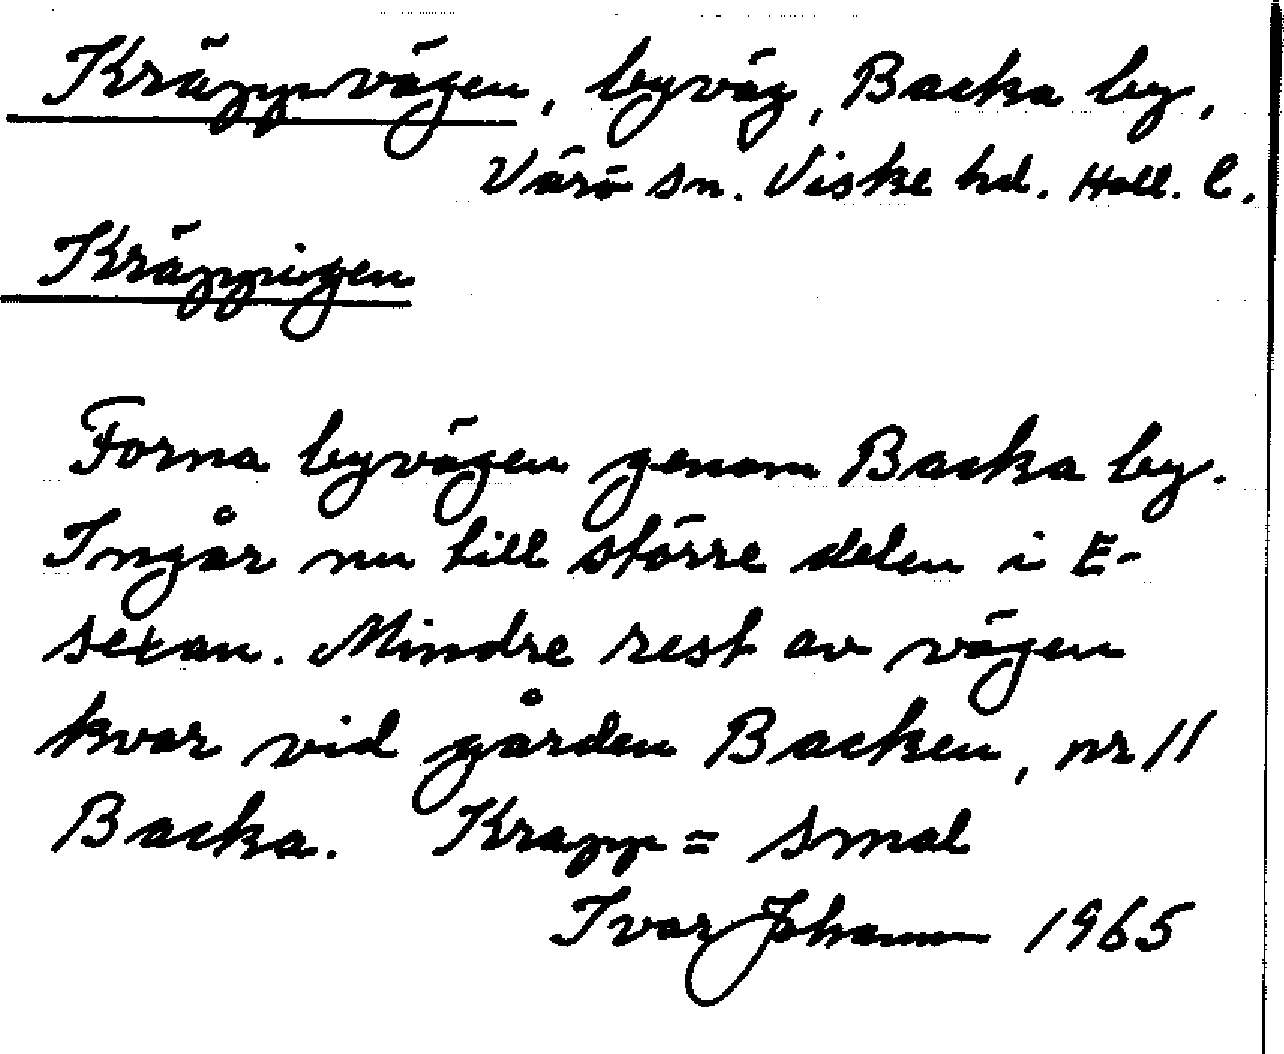 Kräppvägen, byväg, Backa by,
Värö sn. Viske hd. Hall. l.
Kräppigen
Forna byvägen genom Backa by.
Ingår nu till större delen i E-
sexan. Mindre rest av vägen
kvar vid gården Backen, nr 11
Backa. Krapp = smal
Ivar Johansson 1965